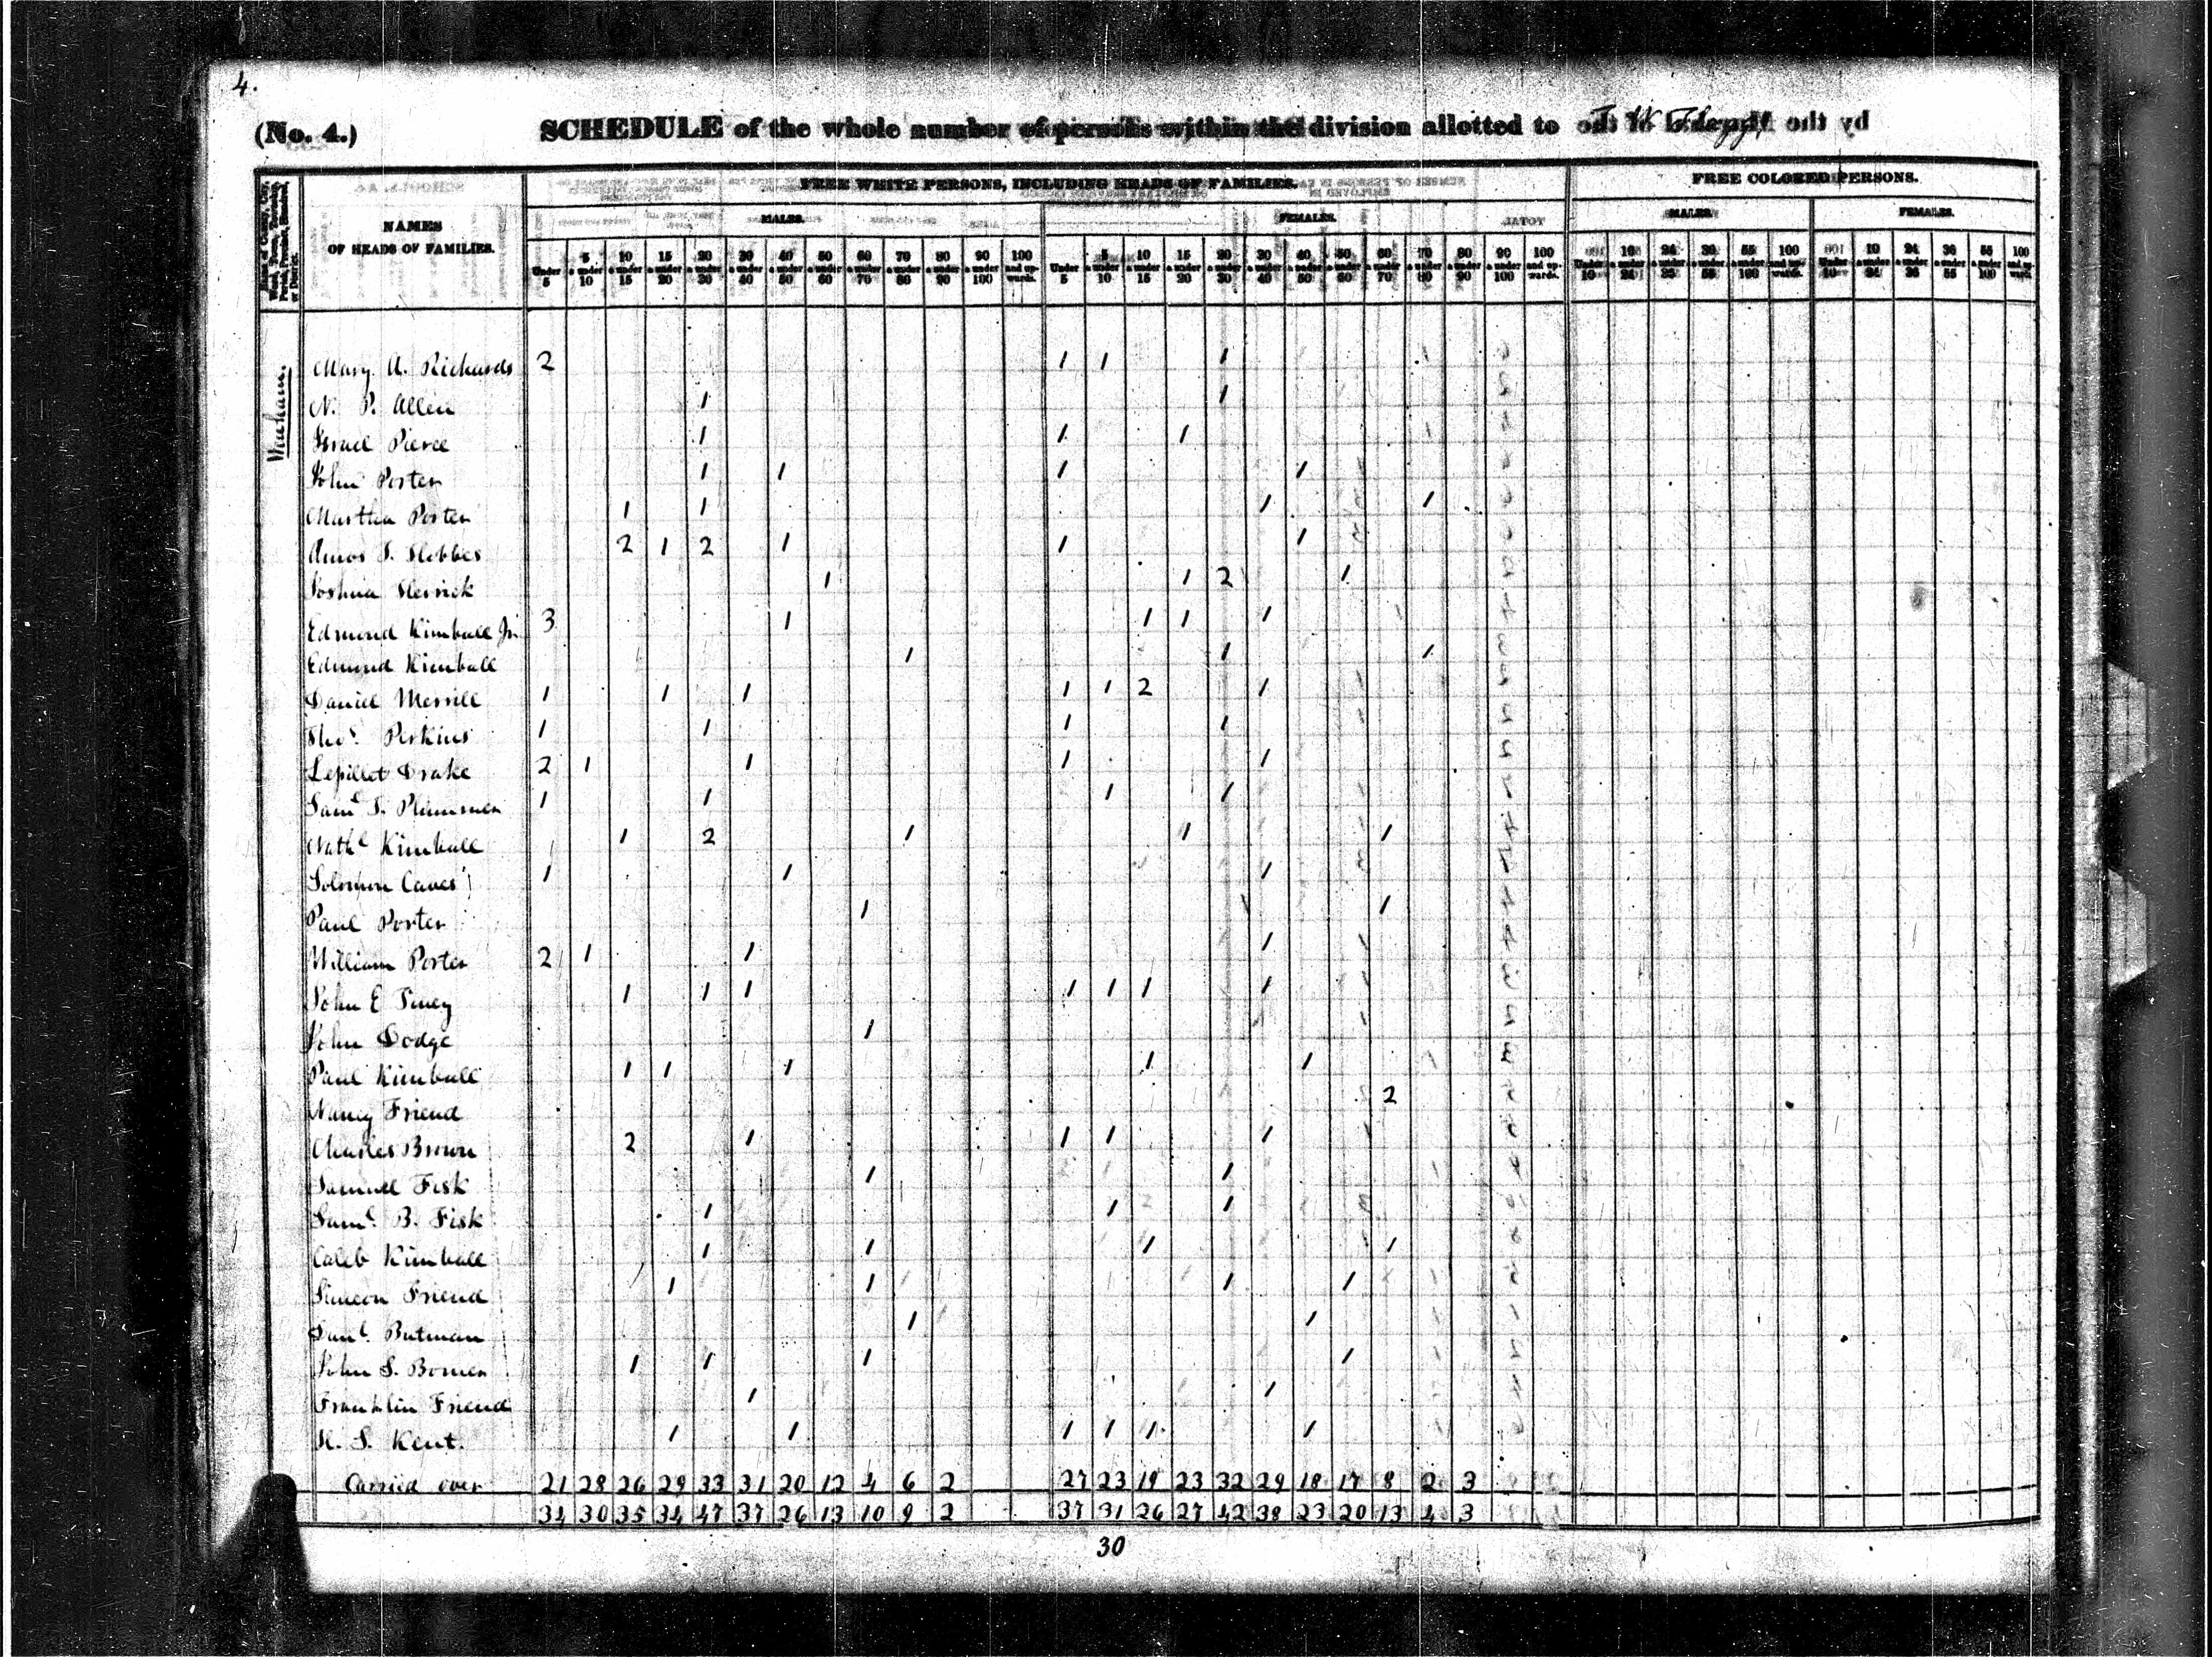 4.
(No. 4.) SCHEDULE of the whole number of persons within the division allotted to by the
NAMES OF HEADS OF FAMILIES.
FREE WHITE PERSONS, INCLUDING HEADS OF FAMILIES.
FREE COLORED PERSONS.
MALES. FEMALES. MALES. FEMALES.
Under 5 | 5 & under 10 | 10 & under 15 | 15 & under 20 | 20 & under 30 | 30 & under 40 | 40 & under 50 | 50 & under 60 | 60 & under 70 | 70 & under 80 | 80 & under 90 | 90 & under 100 | 100 and upwards. | Under 5 | 5 & under 10 | 10 & under 15 | 15 & under 20 | 20 & under 30 | 30 & under 40 | 40 & under 50 | 50 & under 60 | 60 & under 70 | 70 & under 80 | 80 & under 90 | 90 & under 100 | 100 and upwards. | Under 10 | 10 & under 24 | 24 & under 36 | 36 & under 55 | 55 & under 100 | 100 and upwards. | Under 10 | 10 & under 24 | 24 & under 36 | 36 & under 55 | 55 & under 100 | 100 and upwards.
Mary A. Richards 2 1 1 1
N. P. Allen 1 1
Israel Pierce 1 1 1
John Porter 1 1 1 1
Martha Porter 1 1 1 1
Amos 2 1 2 1 1 1
Joshua Herrick 1 1 2 1
Edmund Kimball Jr. 3 1 1 1 1
Edmund Kimball 1 1 1
Daniel Merrill 1 1 1 1 1 2 1
Thos. Perkins 1 1 1 1
Drake 2 1 1 1 1
Saml. S. Plummer 1 1 1 1
Nathl Kimball 1 2 1 1 1
Solomon 1 1 1
Paul Porter 1 1 1
William Porter 2 1 1 1
John E 1 1 1 1 1 1 1
John Dodge 1
Paul Kimball 1 1 1 1 1
Nancy Friend 2
Charles Brown 2 1 1 1 1
Samuel Fisk 1 1
Saml. B. Fisk 1 1 1
Caleb Kimball 1 1 1 1
Simeon Friend 1 1 1 1
Butman 1 1
John S. 1 1 1 1
Franklin Friend 1 1
S. Kent. 1 1 1 1 1 1
Carried over 21 28 26 29 33 31 20 12 4 6 2 27 23 19 23 32 29 18 17 8 2 3
34 30 35 34 47 37 26 13 10 9 2 37 31 26 27 42 38 23 20 13 4 3
30